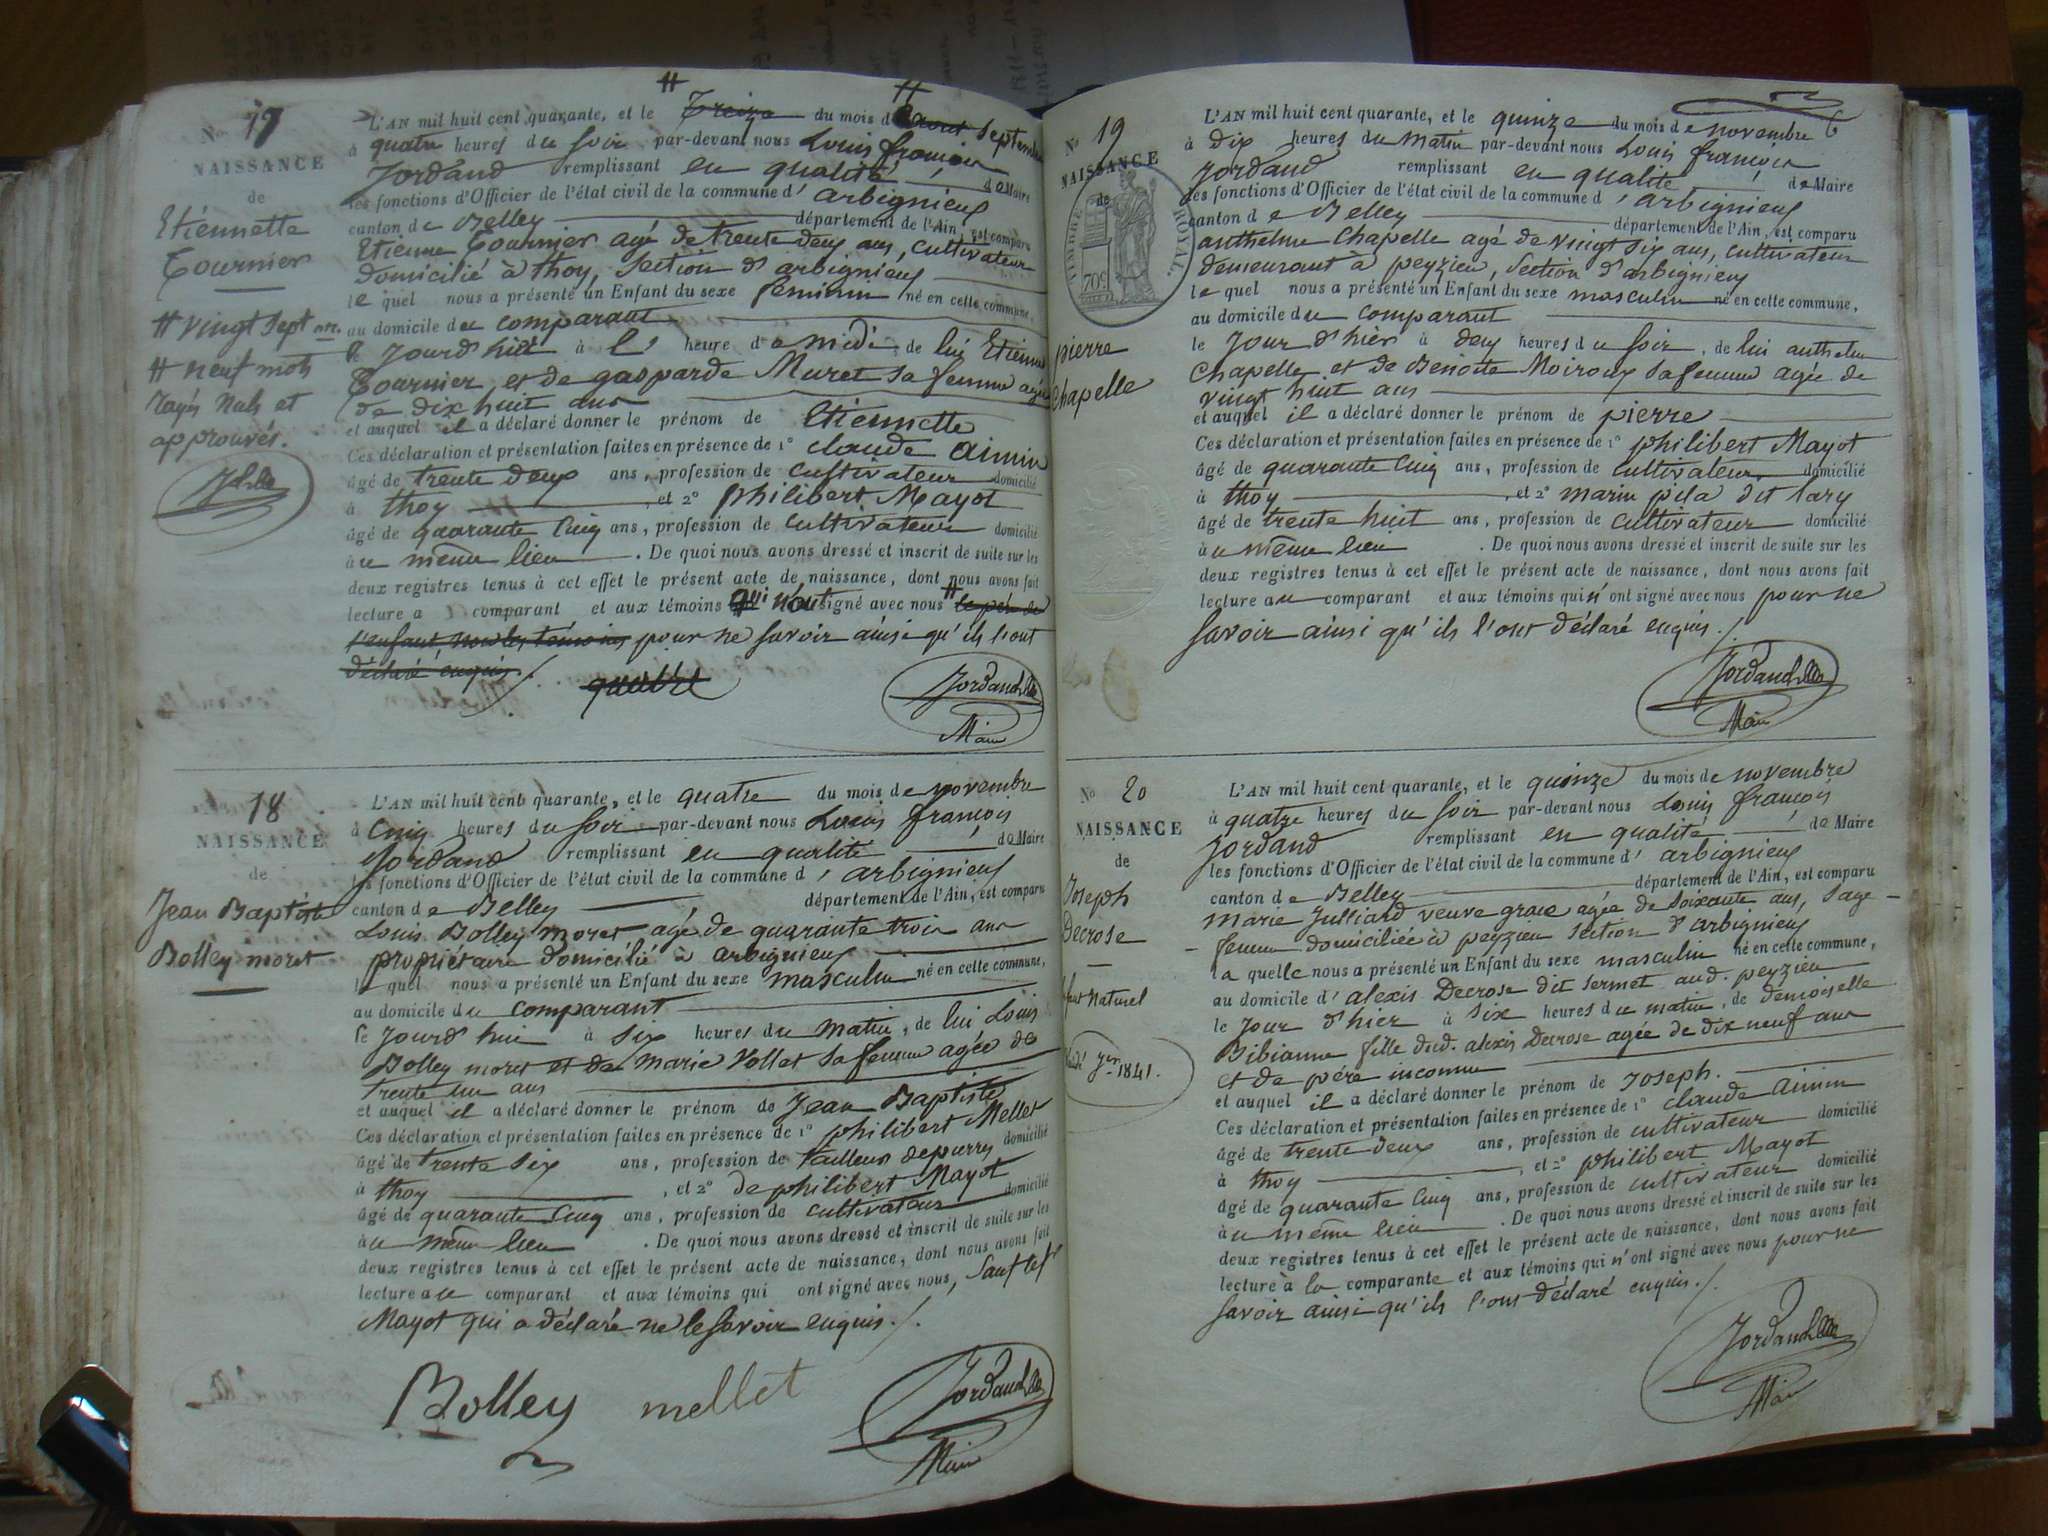 No 17
NAISSANCE
de
Etiennette
Tournier
# vingt sept
# neuf mots
rayés nuls et
approuvés.
L'AN mil huit cent quarante, et le # Treize du mois d # aout septembre
à quatre heures du soir par-devant nous Louis françois
Jordand remplissant en qualité de Maire
les fonctions d'Officier de l'état civil de la commune d'arbignieu
canton de Belley département de l'Ain, est comparu
Etienne Tournier agé de trente deux ans, cultivateur
domicilié à thoy, Section d'arbignieu
le quel nous a présenté un Enfant du sexe feminin né en cette commune,
au domicile du comparant
le jourd'hui à l' heure de midi de lui Etienne
Tournier, et de gasparde Muret sa femme agée
de dix huit ans
et auquel il a déclaré donner le prénom de Etiennette
Ces déclaration et présentation faites en présence de 1° claude aimin
âgé de trente deux ans, profession de cultivateur domicilié
à thoy , et 2° philibert Mayot
âgé de quarante cinq ans, profession de cultivateur domicilié
au même lieu . De quoi nous avons dressé et inscrit de suite sur les
deux registres tenus à cet effet le présent acte de naissance, dont nous avons fait
lecture a comparant et aux témoins qui n'ont signé avec nous # le père de
l'enfant, non les témoins pour ne savoir ainsi qu'ils l'ont
déclaré enquis ./.
Jordand
Maire
18
NAISSANCE
de
Jean Baptiste
Bolley moret
L'AN mil huit cent quarante, et le quatre du mois de novembre
à cinq heures du soir par-devant nous Louis françois
Jordand remplissant en qualité de Maire
les fonctions d'Officier de l'état civil de la commune d'arbignieu
canton de Belley département de l'Ain, est comparu
Louis Bolley moret agé de quarante trois ans
propriétaire domicilié à arbignieu
le quel nous a présenté un Enfant du sexe masculin né en cette commune,
au domicile du comparant
le jourd'hui à six heures du matin, de lui Louis
Bolley moret et de marie Vollet sa femme agée de
trente un ans
et auquel il a déclaré donner le prénom de Jean Baptiste
Ces déclaration et présentation faites en présence de 1° philibert Mellet
âgé de trente six ans, profession de tailleur de pierres domicilié
à thoy , et 2° de philibert Mayot
âgé de quarante cinq ans, profession de cultivateur domicilié
au même lieu . De quoi nous avons dressé et inscrit de suite sur les
deux registres tenus à cet effet le présent acte de naissance, dont nous avons fait
lecture au comparant et aux témoins qui ont signé avec nous, sauf led.
Mayot qui a déclaré ne le savoir enquis ./.
Bolley mellet Jordand
Maire
No 19
NAISSANCE
de
TIMBRE ROYAL.
70c
pierre
Chapelle
L'AN mil huit cent quarante, et le quinze du mois de novembre
à dix heures du matin par-devant nous Louis françois
Jordand remplissant en qualité de Maire
les fonctions d'Officier de l'état civil de la commune d'arbignieu
canton de Belley département de l'Ain, est comparu
anthelme Chapelle agé de vingt six ans, cultivateur
demeurant à peyzieu, Section d'arbignieu
le quel nous a présenté un Enfant du sexe masculin né en cette commune,
au domicile du comparant
le jour d'hier à deux heures du soir, de lui anthelme
Chapelle et de Benoite Moiroux sa femme agée de
vingt huit ans
et auquel il a déclaré donner le prénom de pierre
Ces déclaration et présentation faites en présence de 1° philibert Mayot
âgé de quarante cinq ans, profession de cultivateur domicilié
à thoy , et 2° marin pila dit lary
âgé de trente huit ans, profession de cultivateur domicilié
au même lieu . De quoi nous avons dressé et inscrit de suite sur les
deux registres tenus à cet effet le présent acte de naissance, dont nous avons fait
lecture au comparant et aux témoins qui n'ont signé avec nous pour ne
savoir ainsi qu'ils l'ont déclaré enquis ./.
Jordand
Maire
No 20
NAISSANCE
de
Joseph
Decrose
naturel
1841.
L'AN mil huit cent quarante, et le quinze du mois de novembre
à quatre heures du soir par-devant nous Louis françois
Jordand remplissant en qualité de Maire
les fonctions d'Officier de l'état civil de la commune d'arbignieu
canton de Belley département de l'Ain, est comparu
marie Julliard veuve agée de soixante ans, sage-
femme domiciliée à peyzieu section d'arbignieu
la quelle nous a présenté un Enfant du sexe masculin né en cette commune,
au domicile d'alexis Decrose dit sermet aud. peyzieu
le jour d'hier à six heures du matin, de demoiselle
Bibianne fille dud. alexis Decrose agée de dix neuf ans
et de père inconnu
et auquel il a déclaré donner le prénom de Joseph.
Ces déclaration et présentation faites en présence de 1° claude aimin
âgé de trente deux ans, profession de cultivateur domicilié
à thoy , et 2° philibert Mayot
âgé de quarante cinq ans, profession de cultivateur domicilié
au même lieu . De quoi nous avons dressé et inscrit de suite sur les
deux registres tenus à cet effet le présent acte de naissance, dont nous avons fait
lecture à la comparante et aux témoins qui n'ont signé avec nous pour ne
savoir ainsi qu'ils l'ont déclaré enquis ./.
Jordand
Maire